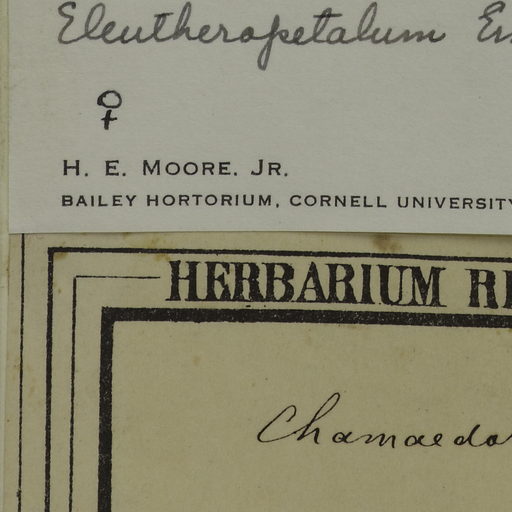 Eleutheropetalum
♀
H. E. MOORE. JR.
BAILEY HORTORIUM, CORNELL UNIVERSITY
HERBARIUM
Chamaedo